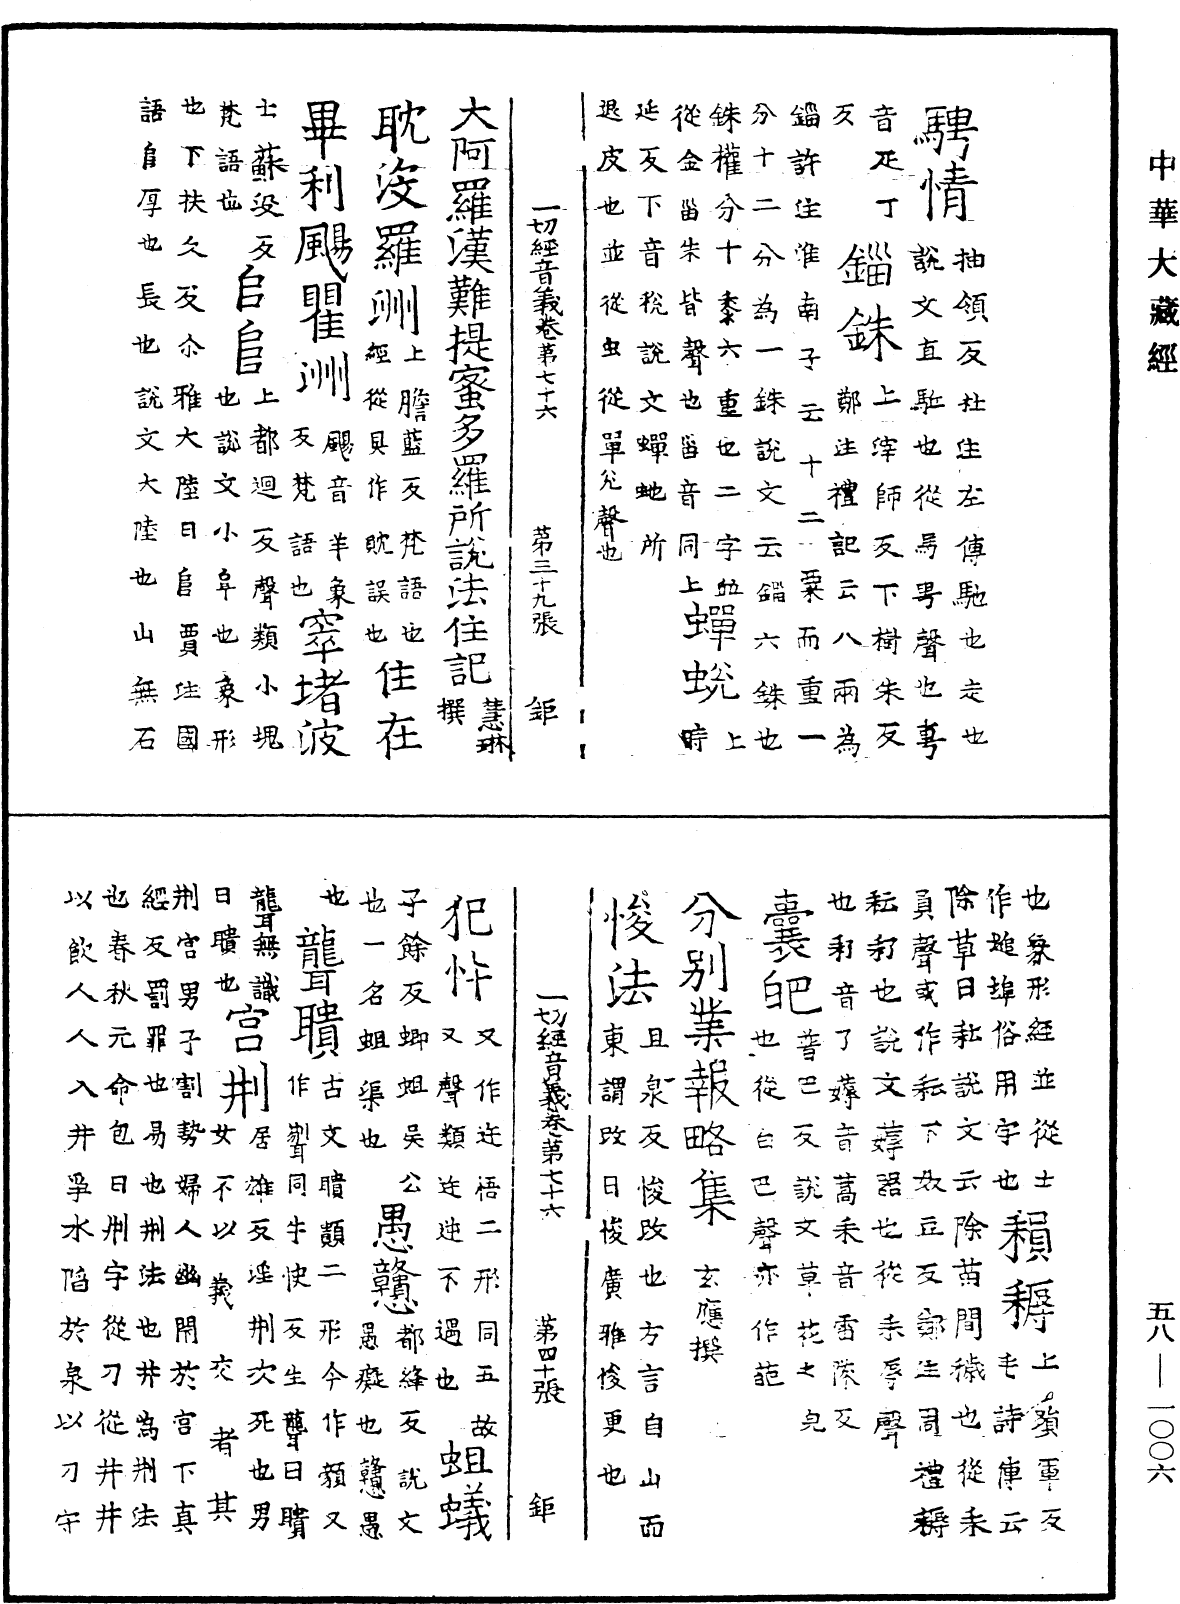 中華大藏經
騁情
抽領反杜注左傳馳也走也
說文直馳也從馬甹聲也甹
音疋丁反
錙銖
上滓師反下樹朱反
鄭注禮記云八兩為
錙許注淮南子云十二粟而重一
分十二分為一銖說文云錙六銖也
銖權分十黍六重也二字並上
從金甾朱皆聲也甾音同上
蟬蛻
時
延反下音稅說文蟬虵所
退皮也並從虫從單兊聲也
一切經音義卷第七十六 第三十九張 鉅
大阿羅漢難提蜜多羅所說法住記
慧琳撰
耽沒羅洲
上膽藍反梵語也
經從貝作躭誤也
住在
畢利颺瞿洲
颺音羊象
反梵語也
窣堵波
士蘇沒反
梵語也
𠂤𨸏
上都迴反聲類小塊
也說文小阜也象形
也下扶久反尒雅大陸曰𨸏賈注國
語𨸏厚也長也說文大陸也山無石
也象形經並從士
作塠埠俗用字也
䅡耨
上殞軍反
毛詩傳云
除草曰耘說文云除苗間穢也從耒
員聲或作耘下奴豆反鄭注周禮耨
耘耔也說文薅器也從耒辱聲
也耔音了薅音蒿耒音雷隊反
囊䶕
普巴反說文草花之皃
也從白巴聲亦作葩
分別業報略集
玄應撰
悛法
且泉反悛改也方言自山而
東謂改曰悛廣雅悛更也
一切經音義卷第七十六 第四十張 鉅
犯忤
又作迕啎二形同五故
又聲類迕逆不遇也
蛆蟻
子餘反蝍蛆吳公
也一名蛆渠也
愚戇
都絳反說文
愚癡也戇愚
也
聾聵
古文聵顡二形今作顡又
作聹同牛快反生聾曰聵
聾無識
曰聵也
宮荆
居雄反淫荆次死也男
女不以義交者其
荆宮男子割勢婦人幽閉於宮下真
經反罰罪也易也荆法也井為荆法
也春秋元命包曰荆字從刀從井井
以飲人人入井爭水陷於泉以刀守
五八—一〇〇六